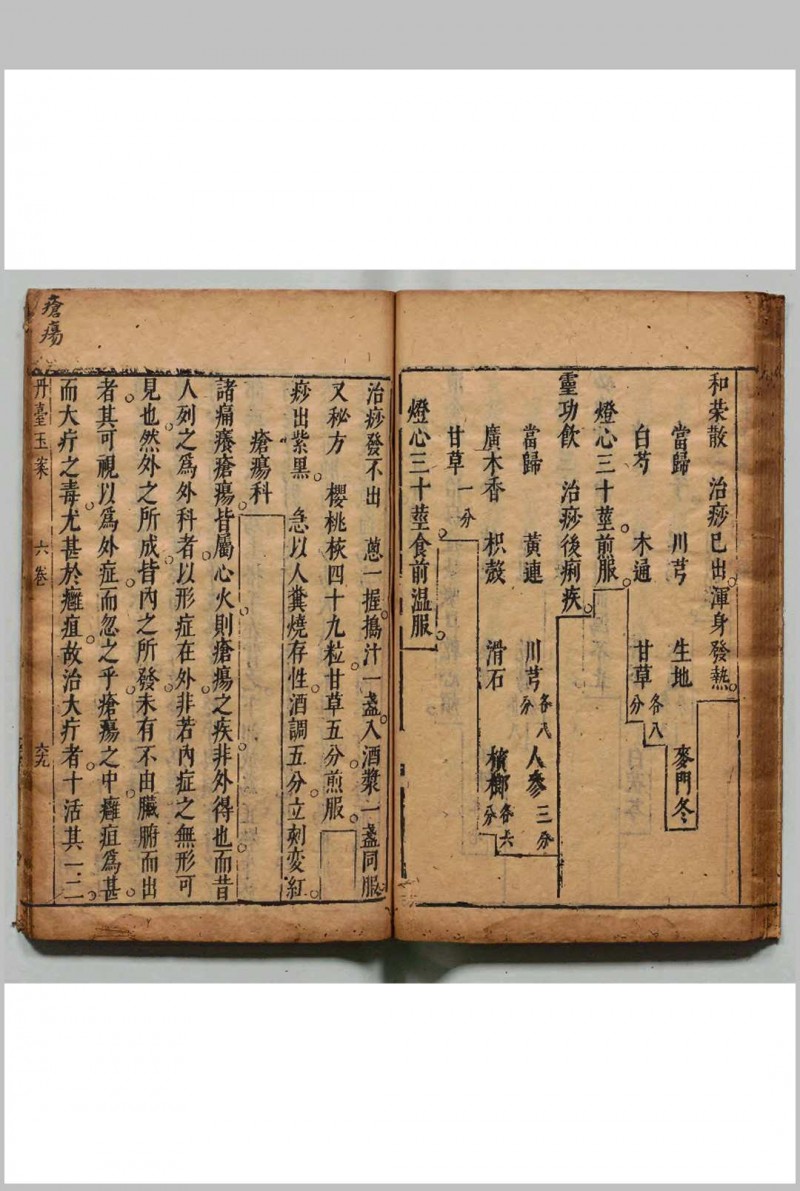 和荣散　治痧已出渾身發熱
當歸　川芎　生地　麥門冬
白芍　木通　甘草各八分
燈心三十莖煎服
靈功飲　治痧後痢疾
當歸　黃連　川芎各八分　人參三分
廣木香　枳殼　滑石　檳榔各六分
甘草一分
燈心三十莖食前温服
治痧發不出　蔥一握搗汁一盞入酒漿一盞同服
又秘方　櫻桃核四十九粒甘草五分煎服
痧出紫黑　急以人糞燒存性酒調五分立刻变紅
瘡瘍科
諸痛癢瘡瘍皆屬心火則瘡瘍之疾非外得也而昔
人列之爲外科者以形症在外非若內症之無形可
見也然外之所成皆內之所發未有不由臟腑而出
者其可視以爲外症而忽之乎瘡瘍之中癰疽爲甚
而大疔之毒尤甚於癰疽故治大疔者十活其一二
丹臺玉案　六卷　六九
瘡瘍